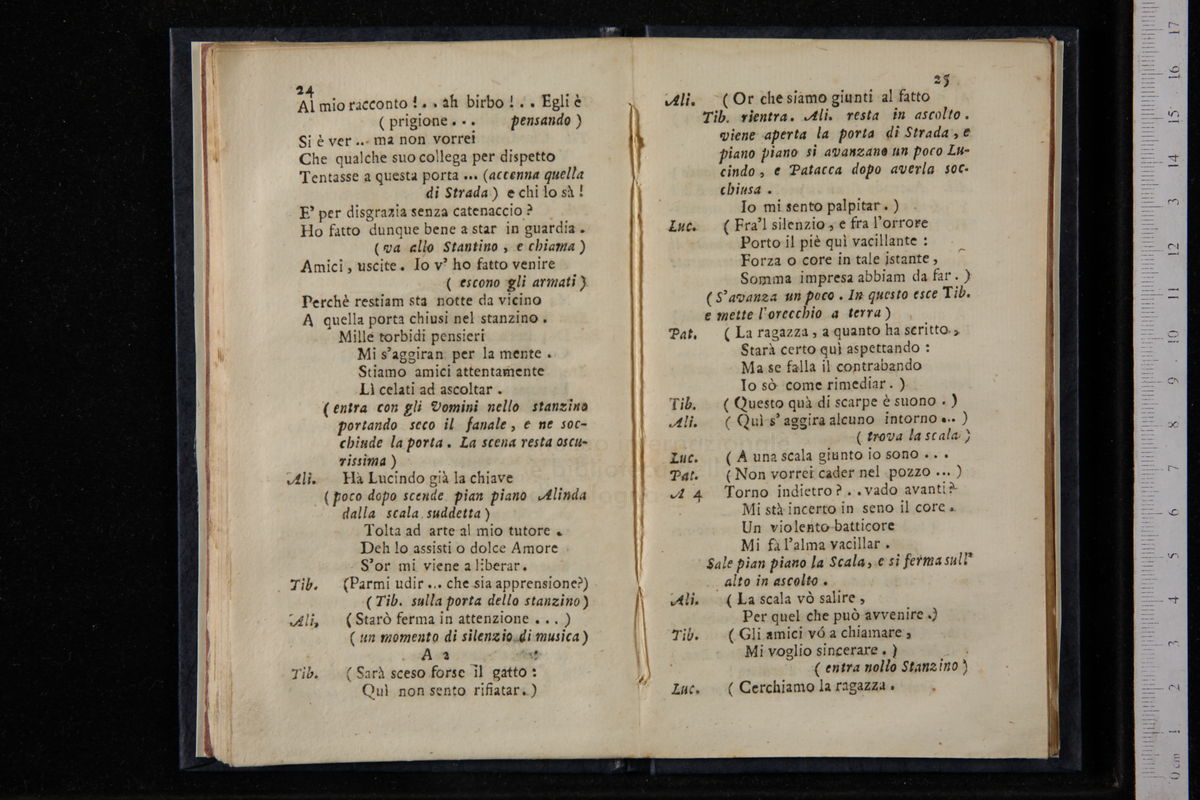 24
Al mio racconto ! . . ah birbo ! . . Egli è
( prigione . . . pensando )
Si è ver ... ma non vorrei
Che qualche suo collega per dispetto
Tentasse a questa porta ... (accenna quella
di Strada) e chi lo sà !
E' per disgrazia senza catenaccio ?
Ho fatto dunque bene a star in guardia .
( va allo Stantino , e chiama )
Amici , uscite . Io v' ho fatto venire
( escono gli armati )
Perchè restiam sta notte da vicino
A quella porta chiusi nel stanzino .
Mille torbidi pensieri
Mi s'aggiran per la mente .
Stiamo amici attentamente
Lì celati ad ascoltar .
( entra con gli Vomini nello stanzino
portando seco il fanale , e ne soc-
chiude la porta . La scena resta oscu-
rissima )
Ali. Hà Lucindo già la chiave
( poco dopo scende pian piano Alinda
dalla scala suddetta )
Tolta ad arte al mio tutore .
Deh lo assisti o dolce Amore
S'or mi viene a liberar .
Tib. (Parmi udir ... che sia apprensione?)
( Tib. sulla porta dello stanzino )
Ali, ( Starò ferma in attenzione . . . )
( un momento di silenzio di musica )
A 2
Tib. ( Sarà sceso forse il gatto :
Quì non sento rifiatar . )
25
Ali. ( Or che siamo giunti al fatto
Tib. rientra . Ali. resta in ascolto .
viene aperta la porta di Strada , e
piano piano si avanzano un poco Lu-
cindo , e Patacca dopo averla soc-
chiusa .
Io mi sento palpitar . )
Luc. ( Fra'l silenzio , e fra l'orrore
Porto il piè quì vacillante :
Forza o core in tale istante ,
Somma impresa abbiam da far . )
( S'avanza un poco . In questo esce Tib.
e mette l'orecchio a terra )
Pat. ( La ragazza , a quanto ha scritto ,
Starà certo quì aspettando :
Ma se falla il contrabando
Io sò come rimediar . )
Tib. ( Questo quà di scarpe è suono . )
Ali. ( Quì s' aggira alcuno intorno ... )
( trova la scala )
Luc. ( A una scala giunto io sono . . .
Pat. ( Non vorrei cader nel pozzo ... )
A 4 Torno indietro ? . . vado avanti ?
Mi stà incerto in seno il core .
Un violento batticore
Mi fà l'alma vacillar .
Sale pian piano la Scala , e si ferma sull'
alto in ascolto .
Ali. ( La scala vò salire ,
Per quel che può avvenire .)
Tib. ( Gli amici vó a chiamare ,
Mi voglio sincerare . )
( entra nollo Stanzino )
Luc. ( Cerchiamo la ragazza .